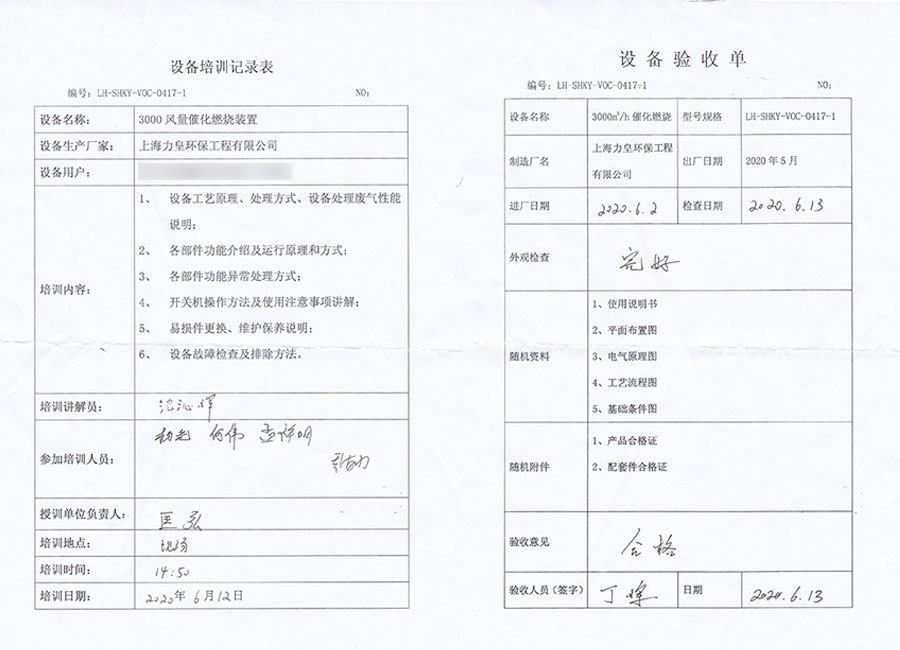 设备培训记录表
编号: LH-SHKY-VOC-0417-1 NO:
设备名称: 3000 风量催化燃烧装置
设备生产厂家: 上海力皇环保工程有限公司
设备用户:
培训内容:
1、 设备工艺原理、处理方式、设备处理废气性能
说明;
2、 各部件功能介绍及运行原理和方式;
3、 各部件功能异常处理方式;
4、 开关机操作方法及使用注意事项讲解;
5、 易损件更换、维护保养说明;
6、 设备故障检查及排除方法。
培训讲解员: 沈沁辉
参加培训人员: 何伟
授训单位负责人: 匡弘
培训地点: 现场
培训时间: 14:50
培训日期: 2020年 6月12日
设备验收单
编号: LH-SHKY-VOC-0417-1 NO:
设备名称 3000m³/h 催化燃烧 型号规格 LH-SHKY-VOC-0417-1
制造厂名 上海力皇环保工程
有限公司 出厂日期 2020 年 5 月
进厂日期 2020.6.2 检查日期 2020.6.13
外观检查 完好
随机资料
1、使用说明书
2、平面布置图
3、电气原理图
4、工艺流程图
5、基础条件图
随机附件
1、产品合格证
2、配套件合格证
验收意见 合格
验收人员(签字) 丁峰 日期 2020.6.13